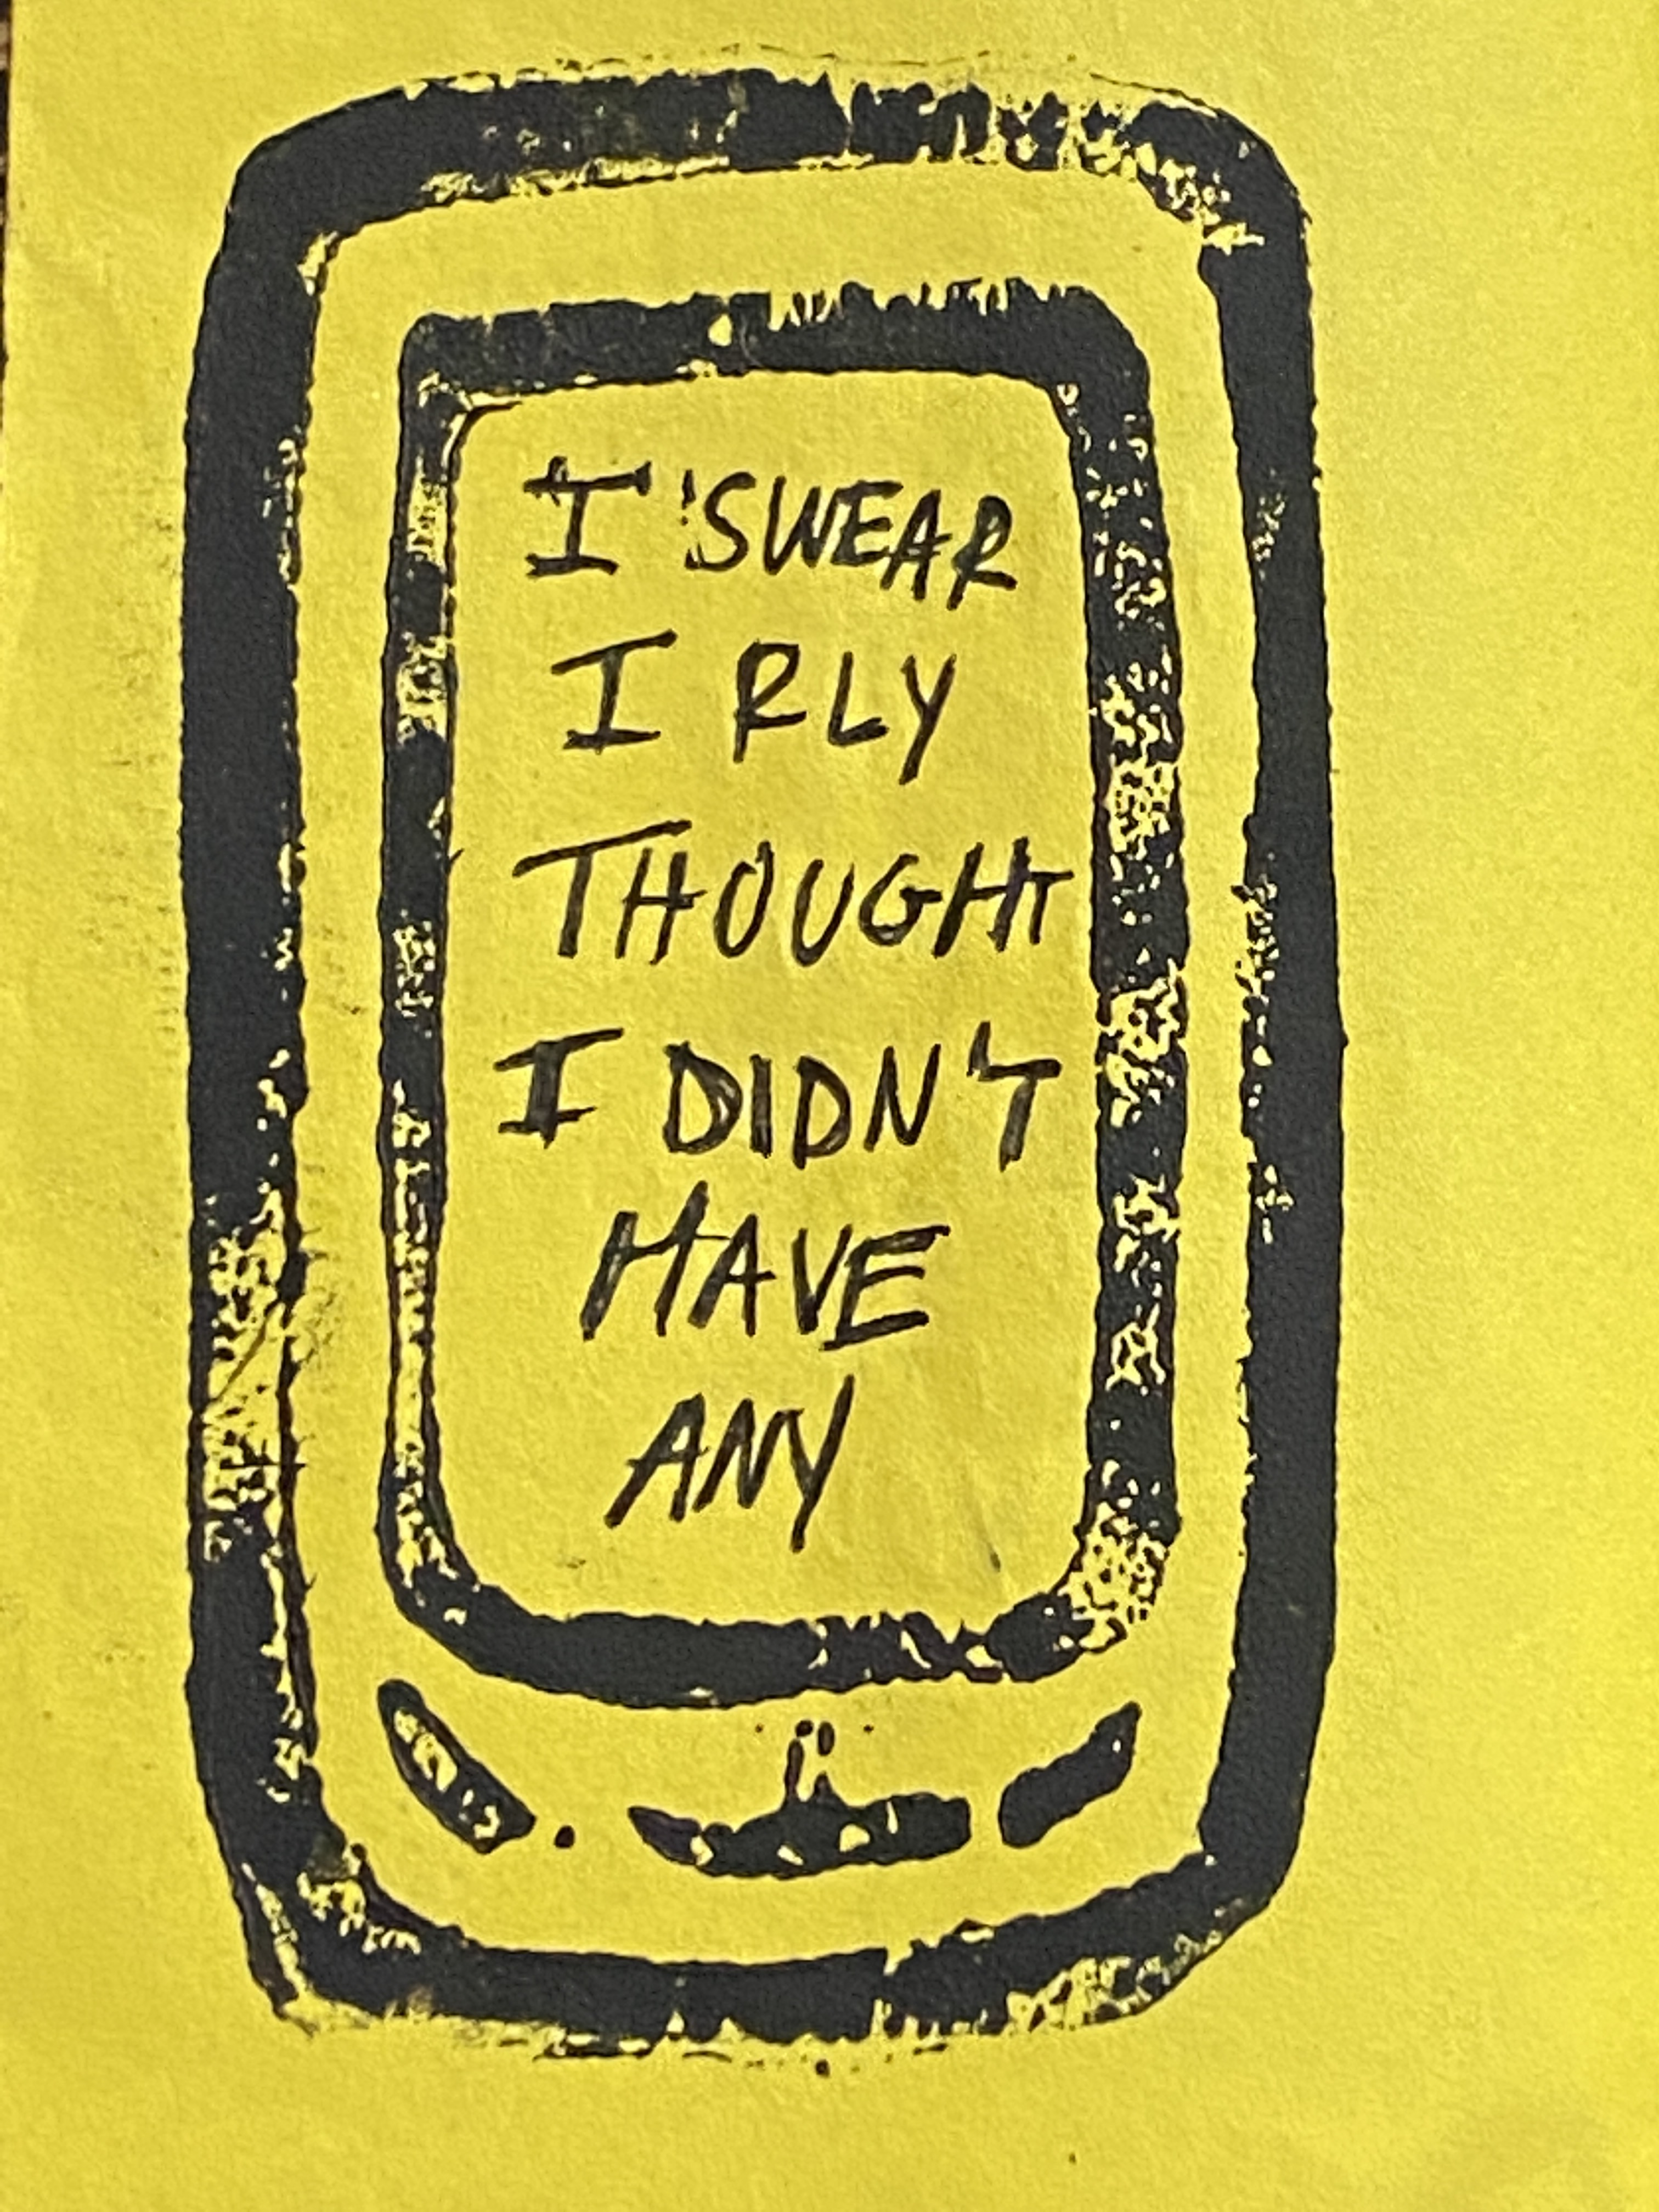 I SWEAR
I RLY
THOUGHT
I DIDN'T
HAVE
ANY